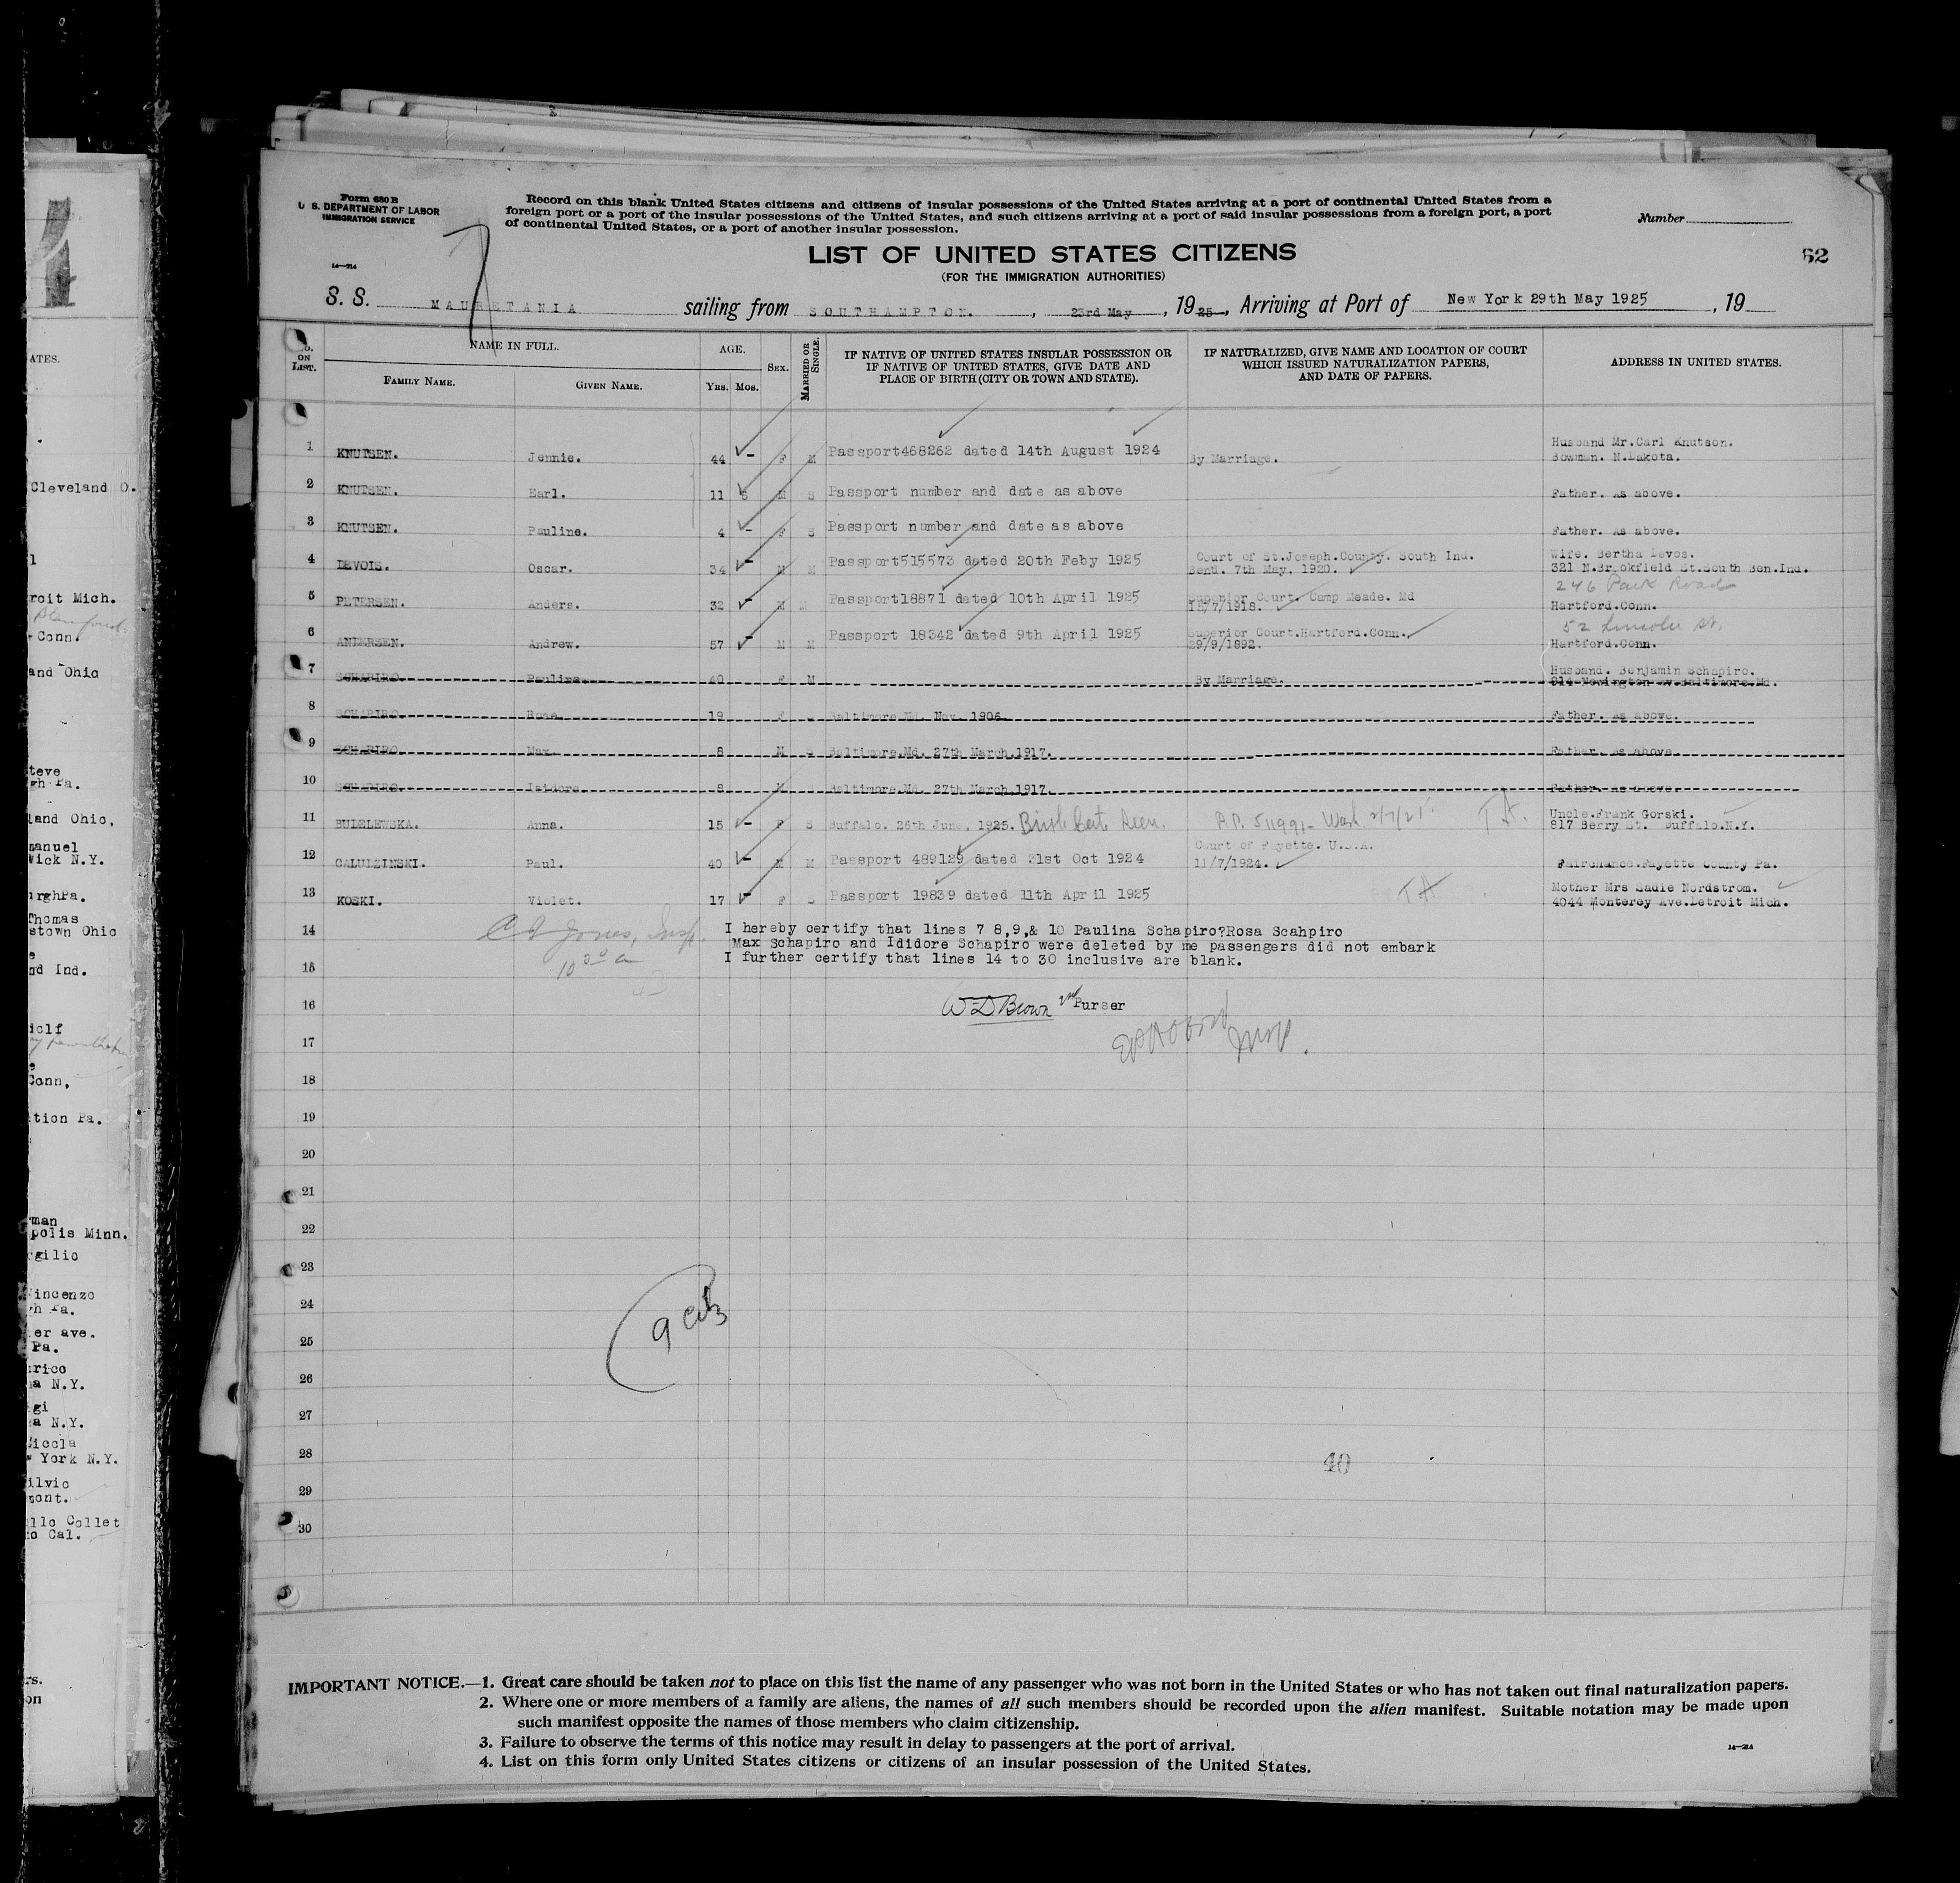 Form 630 B
U. S. DEPARTMENT OF LABOR
IMMIGRATION SERVICE
Record on this blank United States citizens and citizens of insular possessions of the United States arriving at a port of continental United States from a
foreign port or a port of the insular possessions of the United States, and such citizens arriving at a port of said insular possessions from a foreign port, a port
of continental United States, or a port of another insular possession.
Number
62
LIST OF UNITED STATES CITIZENS
(FOR THE IMMIGRATION AUTHORITIES)
14—214
S. S. MAURETANIA sailing from SOUTHAMPTON. , 23rd May , 19 25 , Arriving at Port of New York 29th May 1925 , 19
No. ON LIST. NAME IN FULL. AGE. SEX. MARRIED OR SINGLE. IF NATIVE OF UNITED STATES INSULAR POSSESSION OR IF NATIVE OF UNITED STATES, GIVE DATE AND PLACE OF BIRTH (CITY OR TOWN AND STATE). IF NATURALIZED, GIVE NAME AND LOCATION OF COURT WHICH ISSUED NATURALIZATION PAPERS, AND DATE OF PAPERS. ADDRESS IN UNITED STATES.
FAMILY NAME. GIVEN NAME. YRS. MOS.
1 KNUTSEN. Jennie. 44 - F M Passport468262 dated 14th August 1924 By Marriage. Husband Mr.Carl Knutson. Bowman. N.Dakota.
2 KNUTSEN. Earl. 11 6 M S Passport number and date as above Father. As above.
3 KNUTSEN. Pauline. 4 - F S Passport number and date as above Father. As above.
4 DEVOIS. Oscar. 34 - M M Passport515573 dated 20th Feby 1925 Court of St.Joseph.County. South Ind. Bend. 7th May, 1920. Wife. Bertha Devos. 321 N.Brookfield St.South Ben.Ind.
5 PETERSEN. Anders. 32 - M M Passport18871 dated 10th April 1925 Superior Court. Camp Meade. Md 15/7/1918. 246 Park Road Hartford.Conn.
6 ANDERSEN. Andrew. 57 - M M Passport 18342 dated 9th April 1925 Superior Court.Hartford.Conn. 29/9/1892. 52 Lincoln St. Hartford.Conn.
7 SCHAPIRO Paulina. 40 F M By Marriage. Husband. Benjamin Schapiro. 814 Newington Av.Baltimore.Md.
8 SCHAPIRO Rose 19 F S Baltimore.Md. Nov. 1906. Father. As above.
9 SCHAPIRO Max 8 M S Baltimore.Md. 27th March.1917. Father. As above.
10 SCHAPIRO. Isidore 8 M Baltimore.Md. 27th March.1917. Father. As above.
11 BUDELEWSKA. Anna. 15 - F S Buffalo. 26th June, 1925. Birth Cert. Seen. P.P. 511991- Wash 2/7/25 TA. Uncle.Frank Gorski. 817 Berry St. Buffalo.N.Y.
12 CALUDZINSKI. Paul. 40 - M M Passport 489129 dated 31st Oct 1924 Court of Fayette. U.S.A. 11/7/1924. Fairchance.Fayette County Pa.
13 KOSKI. Violet. 17 - F S Passport 19839 dated 11th April 1925 TA Mother Mrs Sadie Nordstrom. 4044 Monterey Ave.Detroit Mich.
14 I hereby certify that lines 7 8,9,& 10 Paulina Schapiro?Rosa Scahpiro
Max Schapiro and Ididore Schapiro were deleted by me passengers did not embark
I further certify that lines 14 to 30 inclusive are blank.
Jones, Insp.
15
16 W D Brown 2nd Purser
17 Insp.
18
19
20
21
22
23
24
9 Citz
25
26
27
28 40
29
30
IMPORTANT NOTICE.—1. Great care should be taken not to place on this list the name of any passenger who was not born in the United States or who has not taken out final naturalization papers.
2. Where one or more members of a family are aliens, the names of all such members should be recorded upon the alien manifest. Suitable notation may be made upon
such manifest opposite the names of those members who claim citizenship.
3. Failure to observe the terms of this notice may result in delay to passengers at the port of arrival.
4. List on this form only United States citizens or citizens of an insular possession of the United States.
14—214
ATES.
Cleveland O.
roit Mich.
Conn.
and Ohio
teve
gh Pa.
land Ohio,
manuel
wick N.Y.
urghPa.
Thomas
stown Ohio
nd Ind.
Conn,
tion Pa.
man
polis Minn.
rgilio
Vincenzo
gh Pa.
er ave.
Pa.
rico
a N.Y.
gi
a N.Y.
Nicola
w York N.Y.
ilvio
mont.
llo Collet
o Cal.
rs.
on